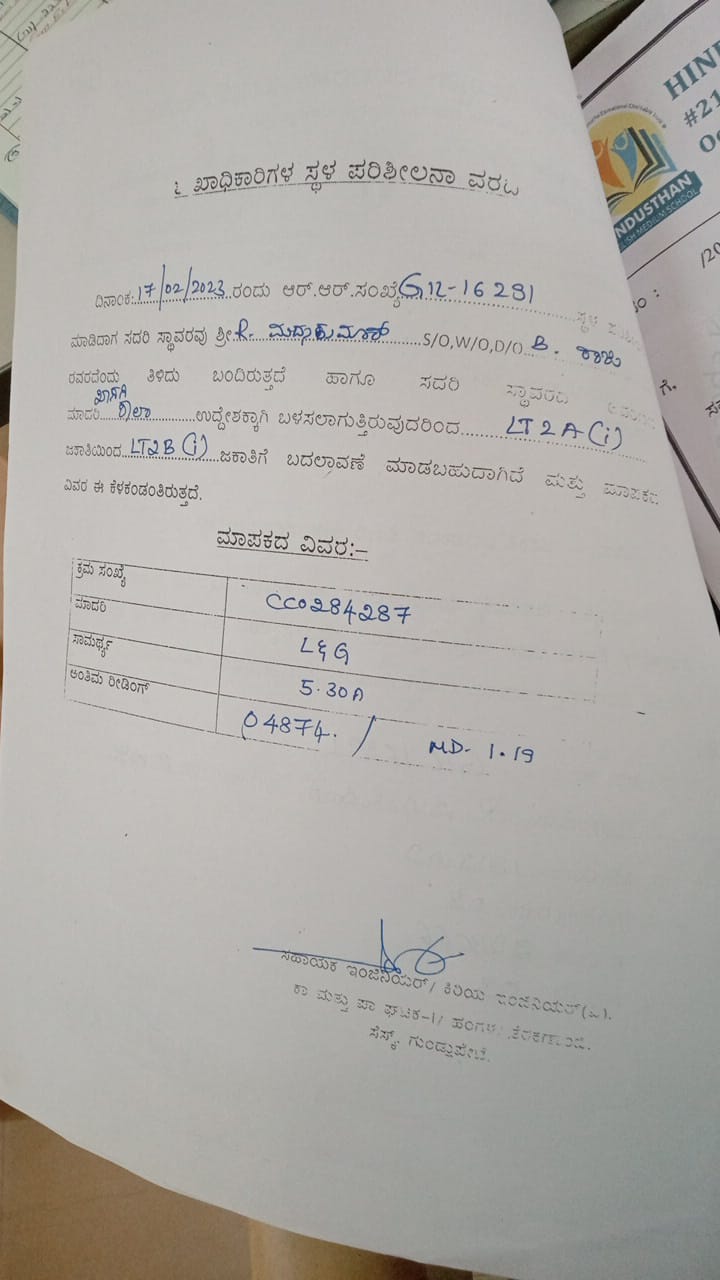 ಖಾಧಿಕಾರಿಗಳ ಸ್ಥಳ ಪರಿಶೀಲನಾ ವರದಿ
ದಿನಾಂಕ:17/02/2023 ರಂದು ಆರ್.ಆರ್.ಸಂಖ್ಯೆ G12-16291 ಸ್ಥಳ
ಮಾಡಿದಾಗ ಸದರಿ ಸ್ಥಾವರವು ಶ್ರೀ R. S/O,W/O,D/O B. ರಾಜು
ರವರದೆಂದು ತಿಳಿದು ಬಂದಿರುತ್ತದೆ ಹಾಗೂ ಸದರಿ ಸ್ಥಾವರದ
ಖಾಸಗಿ
ಮಾದರಿ ಶಾಲಾ ಉದ್ದೇಶಕ್ಕಾಗಿ ಬಳಸಲಾಗುತ್ತಿರುವುದರಿಂದ LT2A(i)
ಜಕಾತಿಯಿಂದ LT2B(i) ಜಕಾತಿಗೆ ಬದಲಾವಣೆ ಮಾಡಬಹುದಾಗಿದೆ ಮತ್ತು ಮಾಪಕದ
ವಿವರ ಈ ಕೆಳಕಂಡಂತಿರುತ್ತದೆ.
ಮಾಪಕದ ವಿವರ:-
ಕ್ರಮ ಸಂಖ್ಯೆ CC0284287
ಮಾದರಿ L&G
ಸಾಮರ್ಥ್ಯ 5.30A
ಅಂತಿಮ ರೀಡಿಂಗ್ 04874. / MD- 1.19
ಸಹಾಯಕ ಇಂಜಿನಿಯರ್/ ಕಿರಿಯ ಇಂಜಿನಿಯರ್(ವಿ).
ಕಾ ಮತ್ತು ಪಾ ಘಟಕ-1/ ಹಂಗಳ/
ಸೆಸ್ಕ್, ಗುಂಡ್ಲುಪೇಟೆ.
#21
HINDUSTHAN
ENGLISH MEDIUM SCHOOL